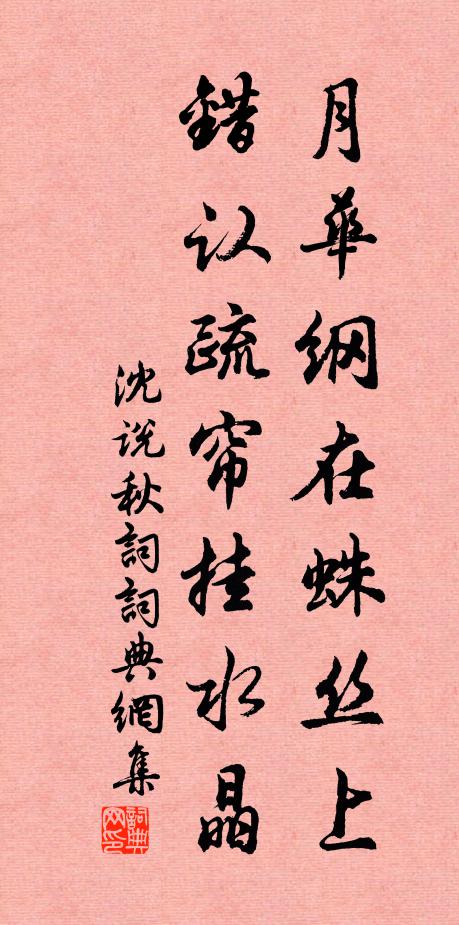 月華網在蛛丝上
錯认疏帘挂水晶
沈说秋詞詞典網集
詞典网印